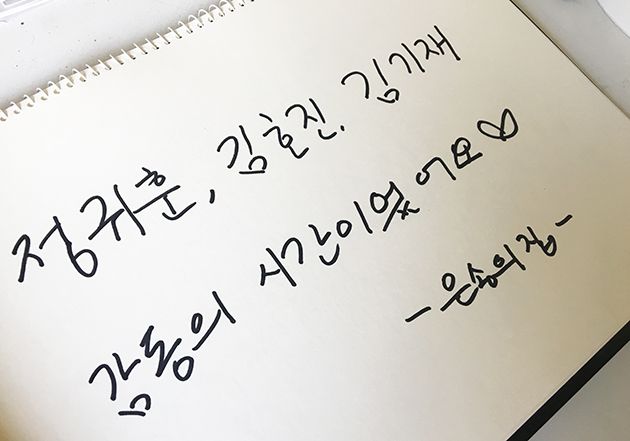 정귀훈, 김호진, 김기재
감동의 시간이었어요♡
-은송의집-